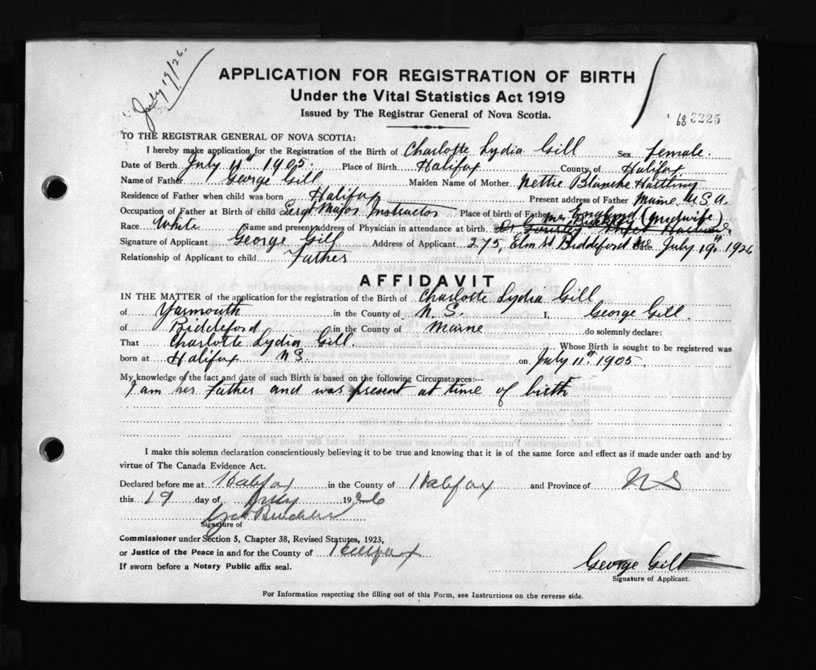 July 19/26
APPLICATION FOR REGISTRATION OF BIRTH
Under the Vital Statistics Act 1919
Issued by The Registrar General of Nova Scotia.
68 3225
TO THE REGISTRAR GENERAL OF NOVA SCOTIA:
I hereby make application for the Registration of the Birth of Charlotte Lydia Gill Sex female.
Date of Birth July 11th 1905. Place of Birth Halifax County of Halifax.
Name of Father George Gill Maiden Name of Mother Nettie Blanche
Residence of Father when child was born Halifax Present address of Father Maine U.S.A.
Occupation of Father at Birth of child Sergt Major Instructor Place of birth of Father England
Race White Name and present address of Physician in attendance at birth. (midwife)
Signature of Applicant George Gill Address of Applicant 275, Elm St Biddeford Me. Date July 19th 1926
Relationship of Applicant to child Father
AFFIDAVIT
IN THE MATTER of the application for the registration of the Birth of Charlotte Lydia Gill
of Yarmouth in the County of N.S. I, George Gill.
of Biddeford in the County of Maine do solemnly declare:
That Charlotte Lydia Gill. Whose Birth is sought to be registered was
born at Halifax N.S. on July 11th 1905.
My knowledge of the fact and date of such Birth is based on the following Circumstances:—
I am her Father and was present at time of birth
I make this solemn declaration conscientiously believing it to be true and knowing that it is of the same force and effect as if made under oath and by
virtue of The Canada Evidence Act.
Declared before me at Halifax in the County of Halifax and Province of N S
this 19 day of July 1926
Signature of
Commissioner under Section 5, Chapter 38, Revised Statutes, 1923,
or Justice of the Peace in and for the County of Halifax
If sworn before a Notary Public affix seal.
George Gill
Signature of Applicant.
For Information respecting the filling out of this Form, see Instructions on the reverse side.